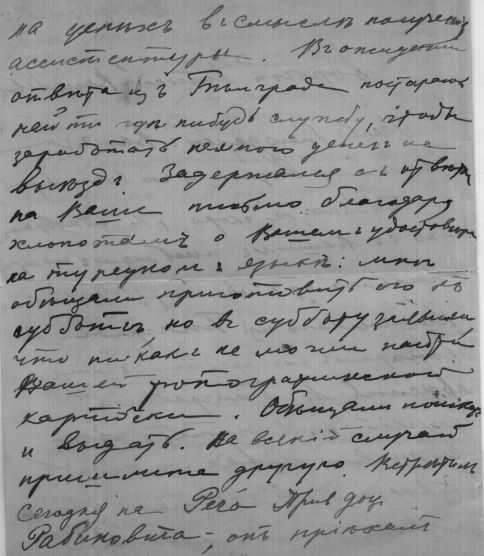 на ценихъ въ смыслѣ полученія
ассистентуры. Въ ожиданіи
отвѣта изъ Бѣлграда постараюсь
найти гдѣ нибудь службу, чтобы
заработать немного денегъ на
выѣздъ. Задержался съ отвѣтомъ
на Ваше письмо благодаря
хлопотамъ о Вашемъ удостовѣре
на турецкомъ языкѣ: мнѣ
обѣщали приготовить его къ
субботѣ, но въ субботу заявили
что никакъ не могли найти
Вашей фотографической
карточки. Обѣщали поискать
и выдать. На всякій случай
пришлите другую. Встрѣтилъ
сегодня на Pera Прив доц.
Рабиновича; онъ пріѣхалъ